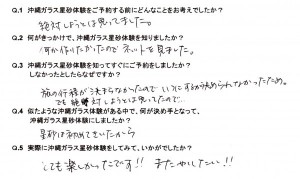 Q.1 沖縄ガラス星砂体験をご予約する前にどんなことをお考えでしたか？
絶対しようとは思ってました。
Q.2 何がきっかけで、沖縄ガラス星砂体験を知りましたか？
何か作りたかったのでネットを見ました。
Q.3 沖縄ガラス星砂体験を知ってすぐにご予約をしましたか？
しなかったとしたらならなぜですか？
旅の行程が決まらなかったので いつにするか決められなかったため。
でも絶対しようとは思ってたので
Q.4 似たような沖縄ガラス体験がある中で、何が決め手となって、
沖縄ガラス星砂体験にしましたか？
星砂は初めてきいたから
Q.5 実際に沖縄ガラス星砂体験をしてみて、いかがでしたか？
とても楽しかったです!! またやりたい!!